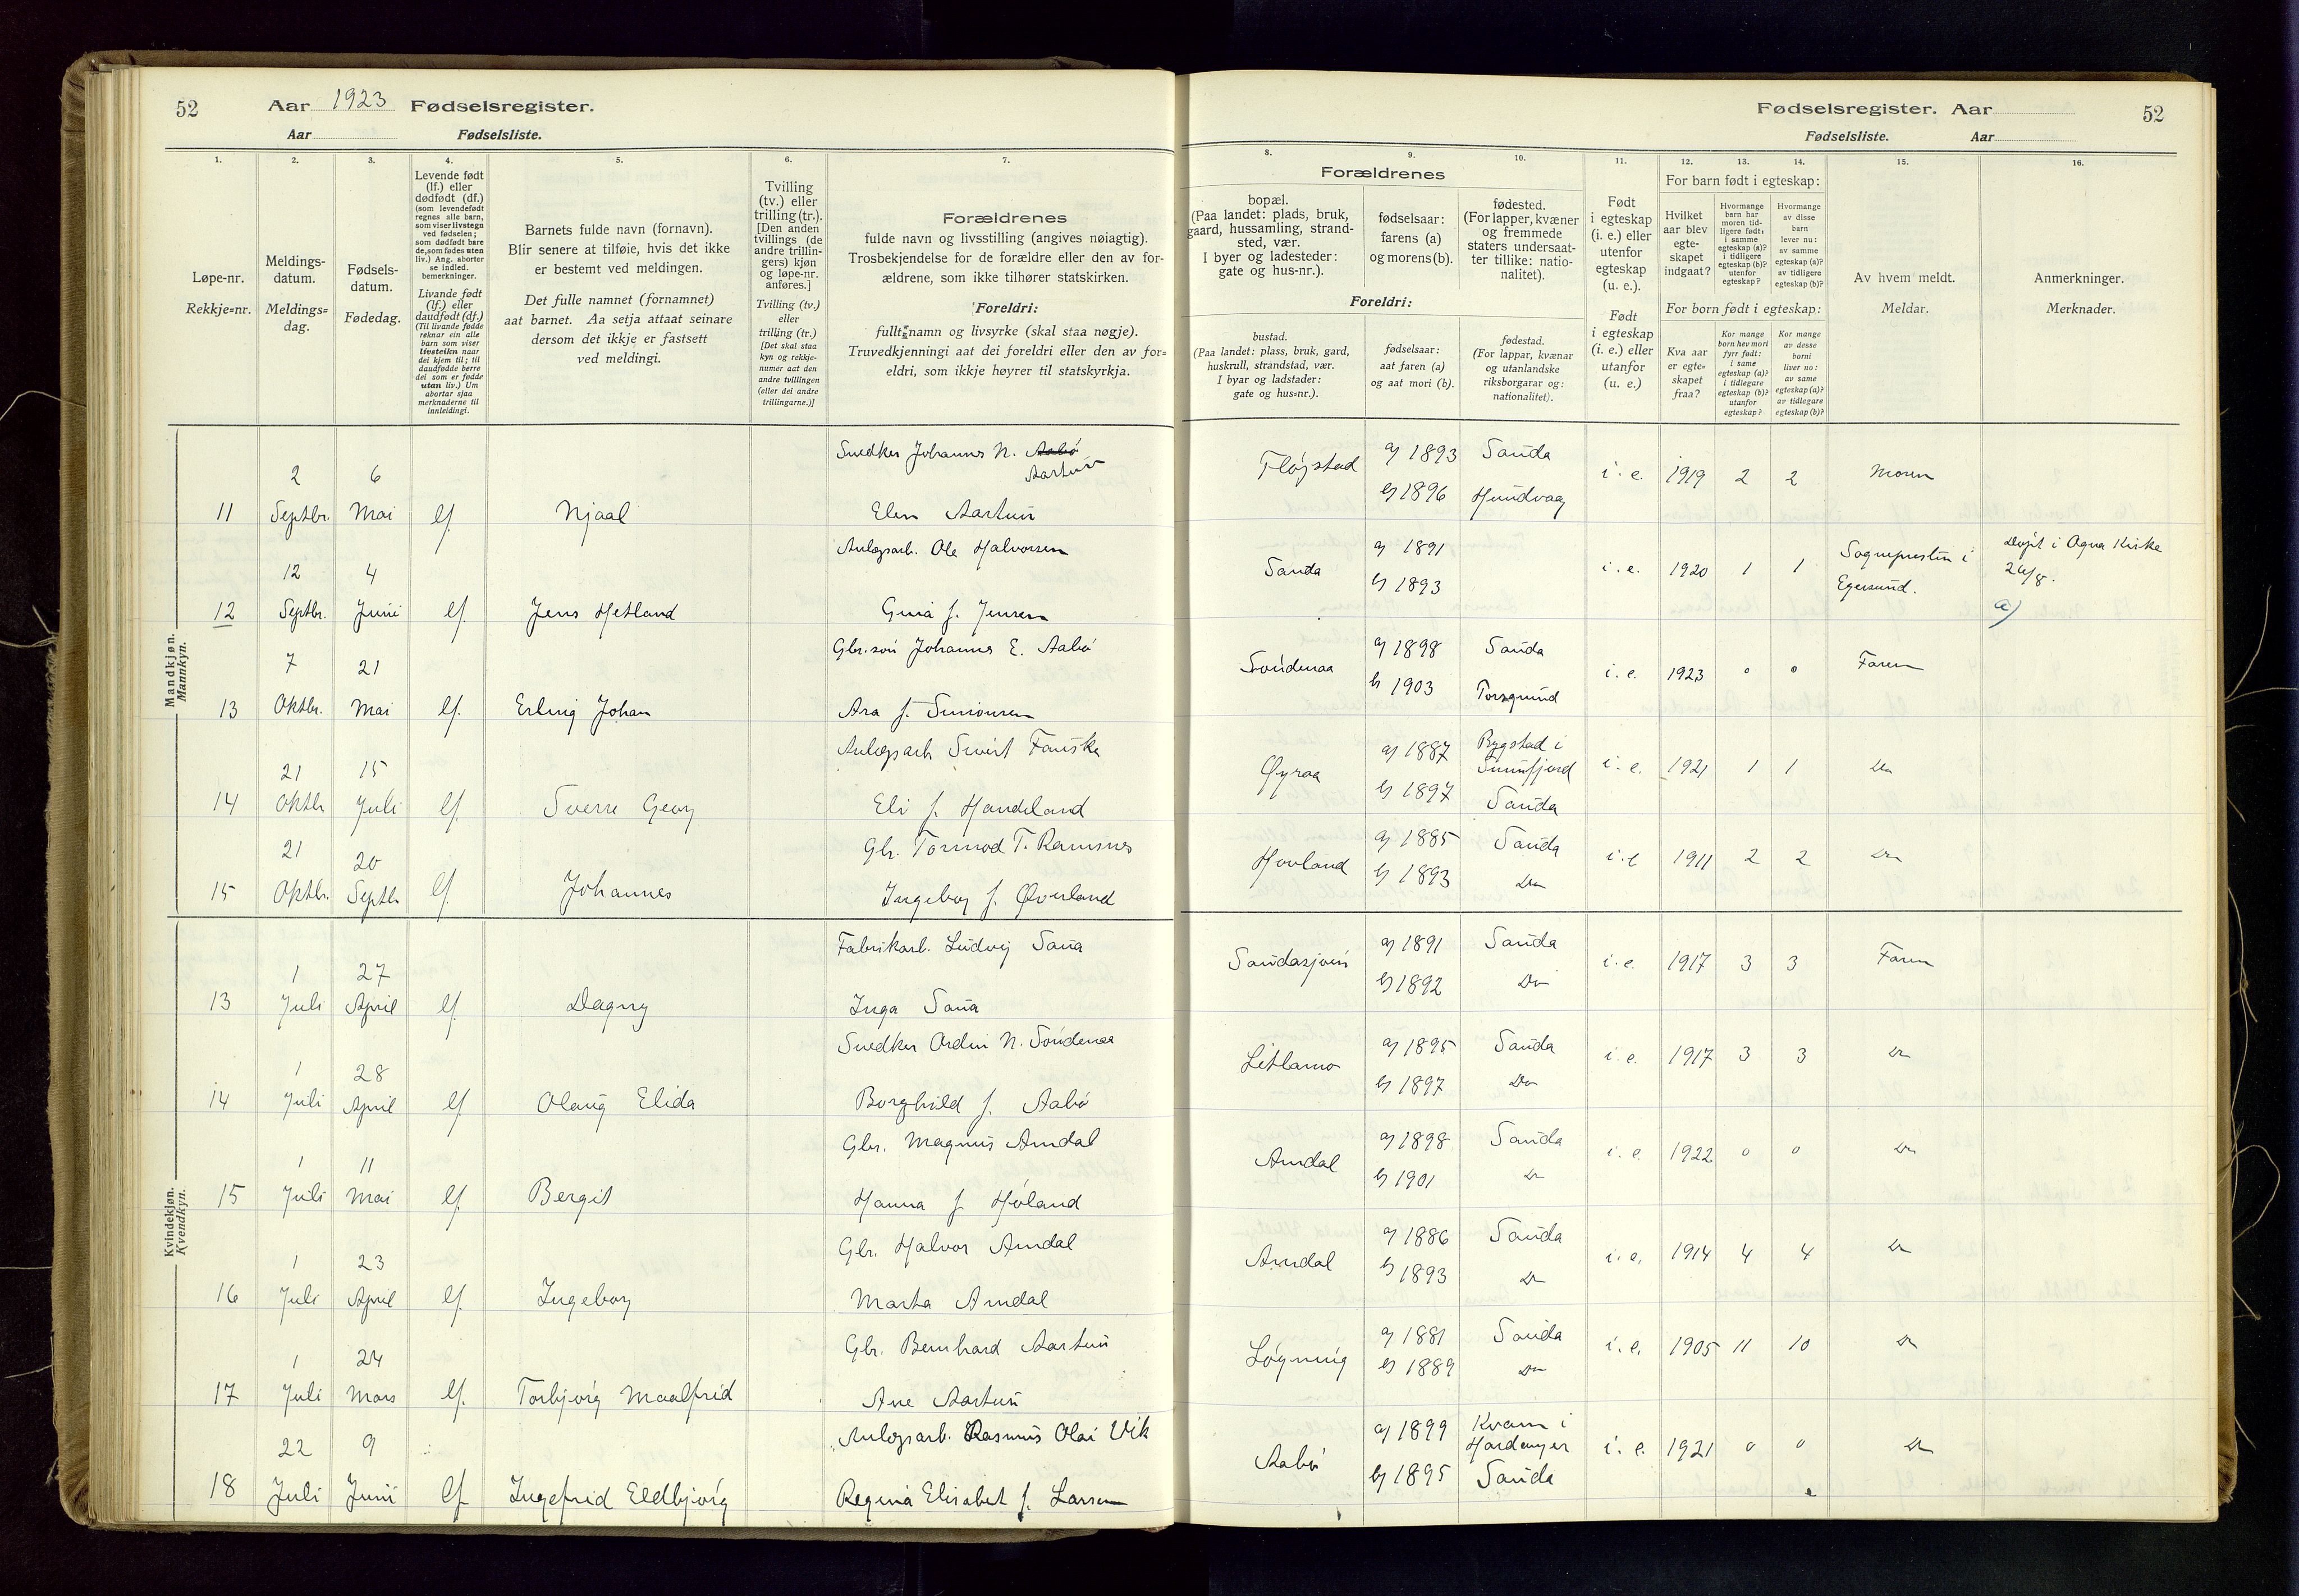 52 Aar 1923 Fødselsregister.
Aar Fødselsliste.
Fødselsregister. Aar 52
Fødselsliste. Aar
1. 2. 3. 4. 5. 6. 7. 8. 9. 10. 11. 12. 13. 14. 15. 16.
Løpe-nr.
Rekkje=nr.
Meldings-
datum.
Meldings=
dag.
Fødsels-
datum.
Fødedag.
Levende født
(lf.) eller
dødfødt (df.)
(som levendefødt
regnes alle barn,
som viser livstegn
ved fødselen;
som dødfødt bare
de, som fødes uten
liv.) Ang. aborter
se indled.
bemerkninger.
Livande født
(lf.) eller
daudfødt (df.)
(Til livande fødde
reknar ein alle
born som viser
livsteikn naar
dei kjem til; til
daudfødde berre
dei som er fødde
utan liv.) Um
abortar sjaa
merknaderne til
innleidingi.
Barnets fulde navn (fornavn).
Blir senere at tilføie, hvis det ikke
er bestemt ved meldingen.
Det fulle namnet (fornamnet)
aat barnet. Aa setja attaat seinare
dersom det ikkje er fastsett
ved meldingi.
Tvilling
(tv.) eller
trilling (tr.).
[Den anden
tvillings (de
andre trillin-
gers) kjøn
og løpe-nr.
anføres.]
Tvilling (tv.)
eller
trilling (tr.)
[Det skal staa
kyn og rekkje-
numer aat den
andre tvillingen
(eller dei andre
trillingarne.)]
Forældrenes
fulde navn og livsstilling (angives nøiagtig).
Trosbekjendelse for de forældre eller den av for-
ældrene, som ikke tilhører statskirken.
Foreldri:
fullt namn og livsyrke (skal staa nøgje).
Truvedkjenningi aat dei foreldri eller den av for=
eldri, som ikkje høyrer til statskyrkja.
Forældrenes
bopæl.
(Paa landet: plads, bruk,
gaard, hussamling, strand-
sted, vær.
I byer og ladesteder:
gate og hus-nr.).
fødselsaar:
farens (a)
og morens (b).
fødested.
(For lapper, kvæner
og fremmede
staters undersaat-
ter tillike: natio-
nalitet).
Foreldri:
bustad.
(Paa landet: plass, bruk, gard,
huskrull, strandstad, vær.
I byar og ladstader:
gate og hus=nr.).
fødselsaar:
aat faren (a)
og aat mori (b).
fødestad.
(For lappar, kvænar
og utanlandske
riksborgarar og:
nationalitet).
Født
i egteskap
(i. e.) eller
utenfor
egteskap
(u. e.).
Født
i egteskap
(i. e.) eller
utanfor
(u. e.)
For barn født i egteskap:
Hvilket
aar blev
egte-
skapet
indgaat?
Hvormange
barn har
moren tid-
ligere født:
i samme
egteskap (a)?
i tidligere
egteskap (b)?
utenfor
egteskap?
Hvormange
av disse
barn
lever nu:
av samme
egteskap (a)?
av tidligere
egteskap (b)?
For born født i egteskap:
Kva aar
er egte=
skapet
fraa?
Kor mange
born hev mori
fyrr født:
i same
egteskap (a)?
i tidlegare
egteskap (b)?
utanfor
egteskap?
Kor mange
av desse
borni
liver no:
av same
egteskap (a)?
av tidlegare
egteskap (b)?
Av hvem meldt.
Meldar.
Anmerkninger.
Merknader.
Mandkjøn.
Mannkyn.
11 2 Septbr. 6 Mai lf. Njaal
Snedker Johannes N. Aabø Aartun
Elen Aartun
Fløgstad a) 1893 Sauda
b) 1896 Hundvaag
i. e. 1919 2 2 Moren
12 12 Septbr. 4 Juni lf. Jens Hetland
Anlegsarb. Ole Halvorsen
Gina f. Jensen
Sauda a) 1891
b) 1893
i. e. 1920 1 1 Sogneprestin i
Egersund.
Døpt i Ogna Kirke
26/8.
a)
13 7 Oktbr. 21 Mai lf. Erling Johan
Gbr.søn Johannes E. Aabø
Asa f. Simonsen
Søndenaa a) 1898 Sauda
b) 1903 Torsgrund
i. e. 1923 0 0 Faren
14 21 Oktbr 15 Juli lf. Sverre Georg
Anlegsarb Sivert Fauske
Eli f. Handeland
Øyraa a) 1887 Bygstad i
Sunnfjord
b) 1897 Sauda
i. e. 1921 1 1 Do
15 21 Oktbr. 20 Septbr lf. Johannes
Gbr. Tormod T. Ramsnes
Ingeborg f. Øverland
Hovland a) 1885 Sauda
b) 1893 Do
i. e 1911 2 2 Do
Kvindekjøn.
Kvendkyn.
13 1 Juli 27 April lf. Dagny
Fabrikarb. Ludvig Saua
Inga Saua
Saudasjøen a) 1891 Sauda
b) 1892 Do
i. e. 1917 3 3 Faren
14 1 Juli 28 April lf. Olaug Elida
Snedker Ordin N. Søndenaa
Borghild f. Aabø
Litlamo a) 1895 Sauda
b) 1897 Do
i. e. 1917 3 3 Do
15 1 Juli 11 Mai lf. Bergit
Gbr. Magnus Amdal
Hanna f. Høland
Amdal a) 1898 Sauda
b) 1901 Do
i. e. 1922 0 0 Do
16 1 Juli 23 April lf. Ingeborg
Gbr. Halvor Amdal
Marta Amdal
Amdal a) 1886 Sauda
b) 1893 Do
i. e. 1914 4 4 Do
17 1 Juli 24 Mars lf. Torbjørg Maalfrid
Gbr. Bernhard Aartun
Ane Aartun
Løgning a) 1881 Sauda
b) 1889 Do
i. e. 1905 11 10 Do
18 22 Juli 9 Juni lf Ingefrid Eldbjørg
Anlegsarb. Rasmus Olai Vik
Regina Elisabet f. Larsen
Aabø a) 1899 Kvam i
Hardanger
b) 1895 Sauda
i. e. 1921 0 0 Do